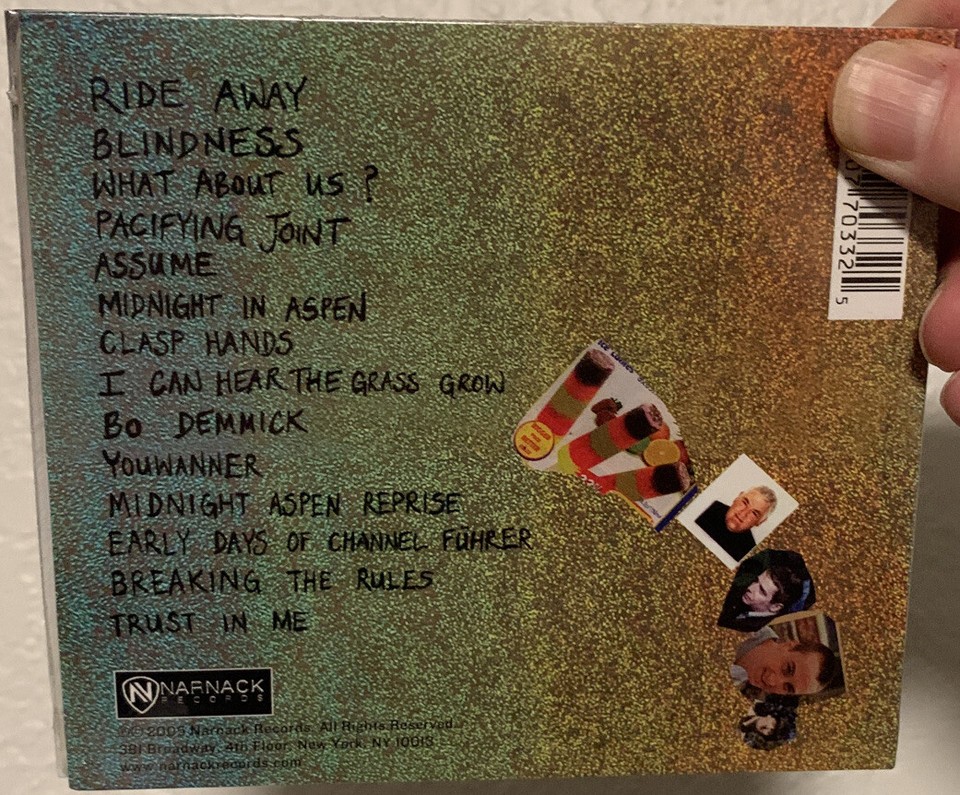 RIDE AWAY
BLINDNESS
WHAT ABOUT US ?
PACIFYING JOINT
ASSUME
MIDNIGHT IN ASPEN
CLASP HANDS
I CAN HEAR THE GRASS GROW
BO DEMMICK
YOUWANNER
MIDNIGHT ASPEN REPRISE
EARLY DAYS OF CHANNEL FÜHRER
BREAKING THE RULES
TRUST IN ME
NARNACK
RECORDS
2005 Narnack Records. All Rights Reserved.
381 Broadway, 4th Floor, New York, NY 10013
www.narnackrecords.com
70332 5